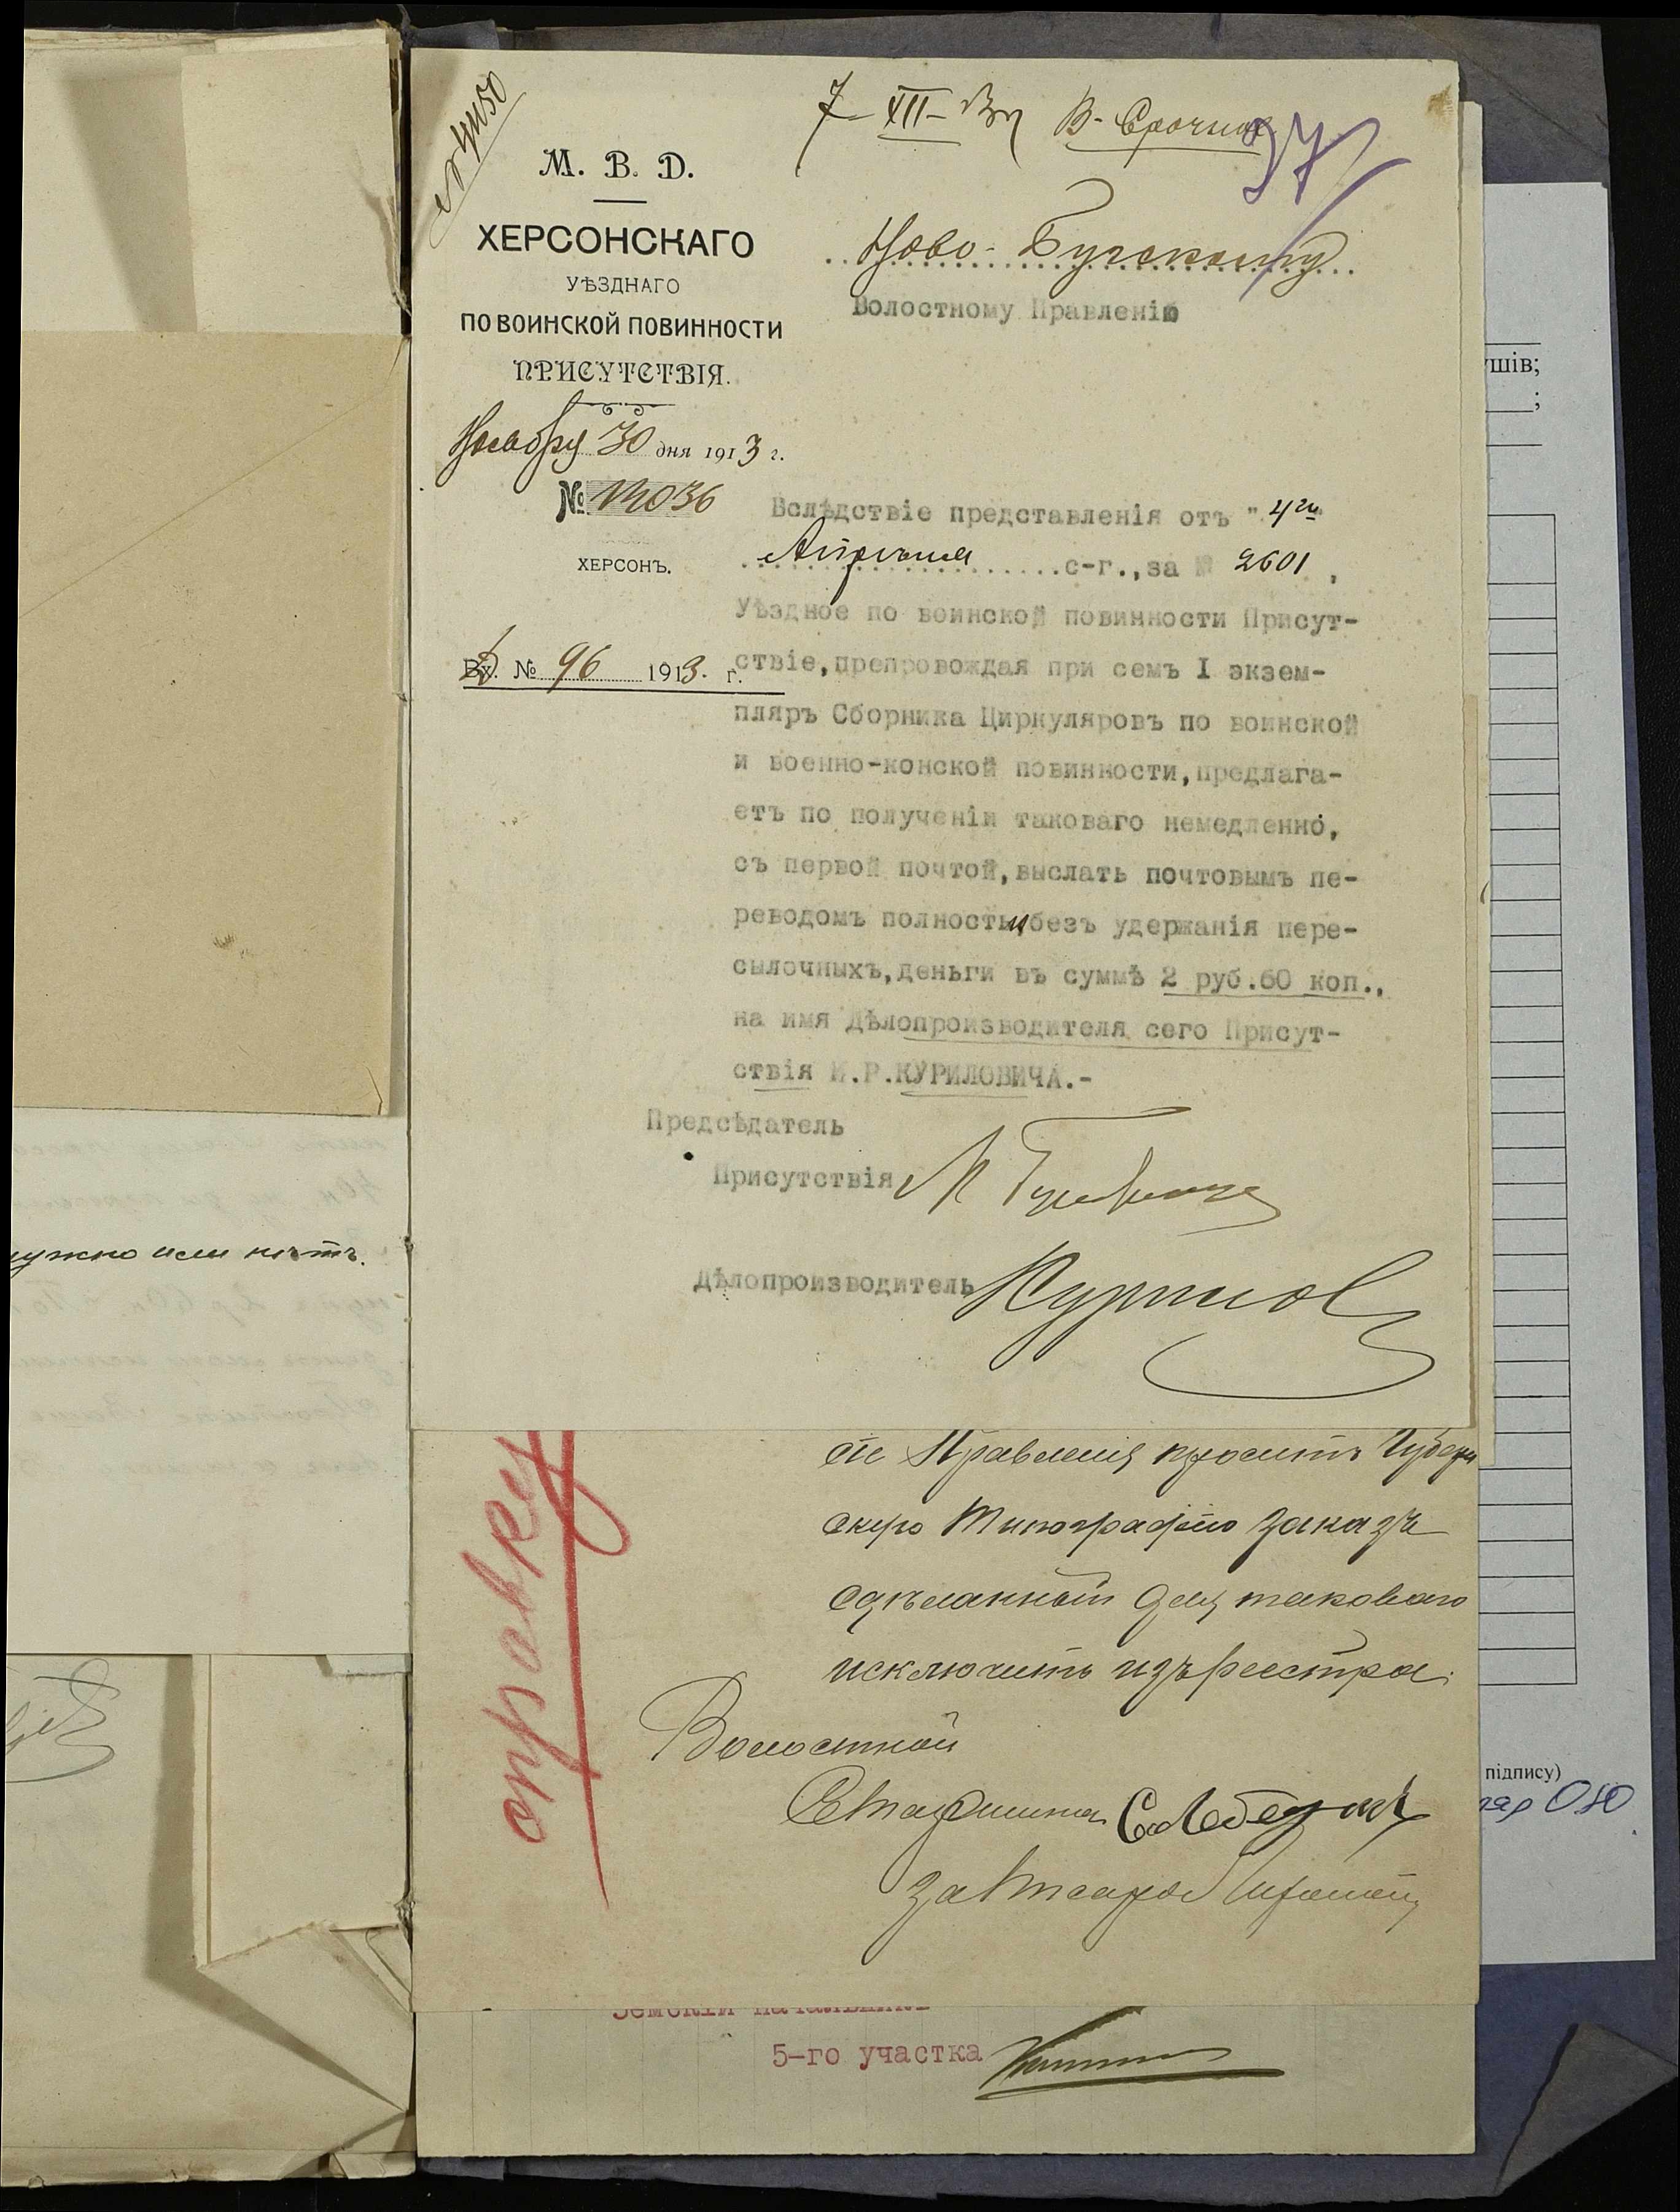 7-XII-13 г В. Срочное
37
М. В. D.
ХЕРСОНСКАГО
УѢЗДНАГО
ПО ВОИНСКОЙ ПОВИННОСТИ
ПРИСУТСТВІЯ.
Ноября 30 дня 1913 г.
ХЕРСОНЪ.
Вх. № 96 1913. г.
Ново-Бугскому
Волостному Правленію
Вслѣдствіе представленія отъ "4го
Апрѣля с-г.,за № 2601,
Уѣздное по воинской повинности Присут-
ствіе,препровождая при семъ I экзем-
пляръ Сборника Циркуляровъ по воинской
и военно-конской повинности,предлага-
етъ по полученіи таковаго немедленно,
съ первой почтой,выслать почтовымъ пе-
реводомъ полностью,безъ удержанія пере-
сылочныхъ,деньги въ суммѣ 2 руб.60 коп.,
на имя Дѣлопроизводителя сего Присут-
ствія И.Р.КУРИЛОВИЧА.-
Предсѣдатель
Присутствія
Дѣлопроизводитель
нужно или нѣтъ.
Правленія проситъ Губерн
скую Типографію заказъ
сдѣланный для таковаго
исключить изъ реестра.
Волостной
Старшина
За Писаря
справку
Земскій Начальникъ
5-го участка
ушів;
;
підпису)
080